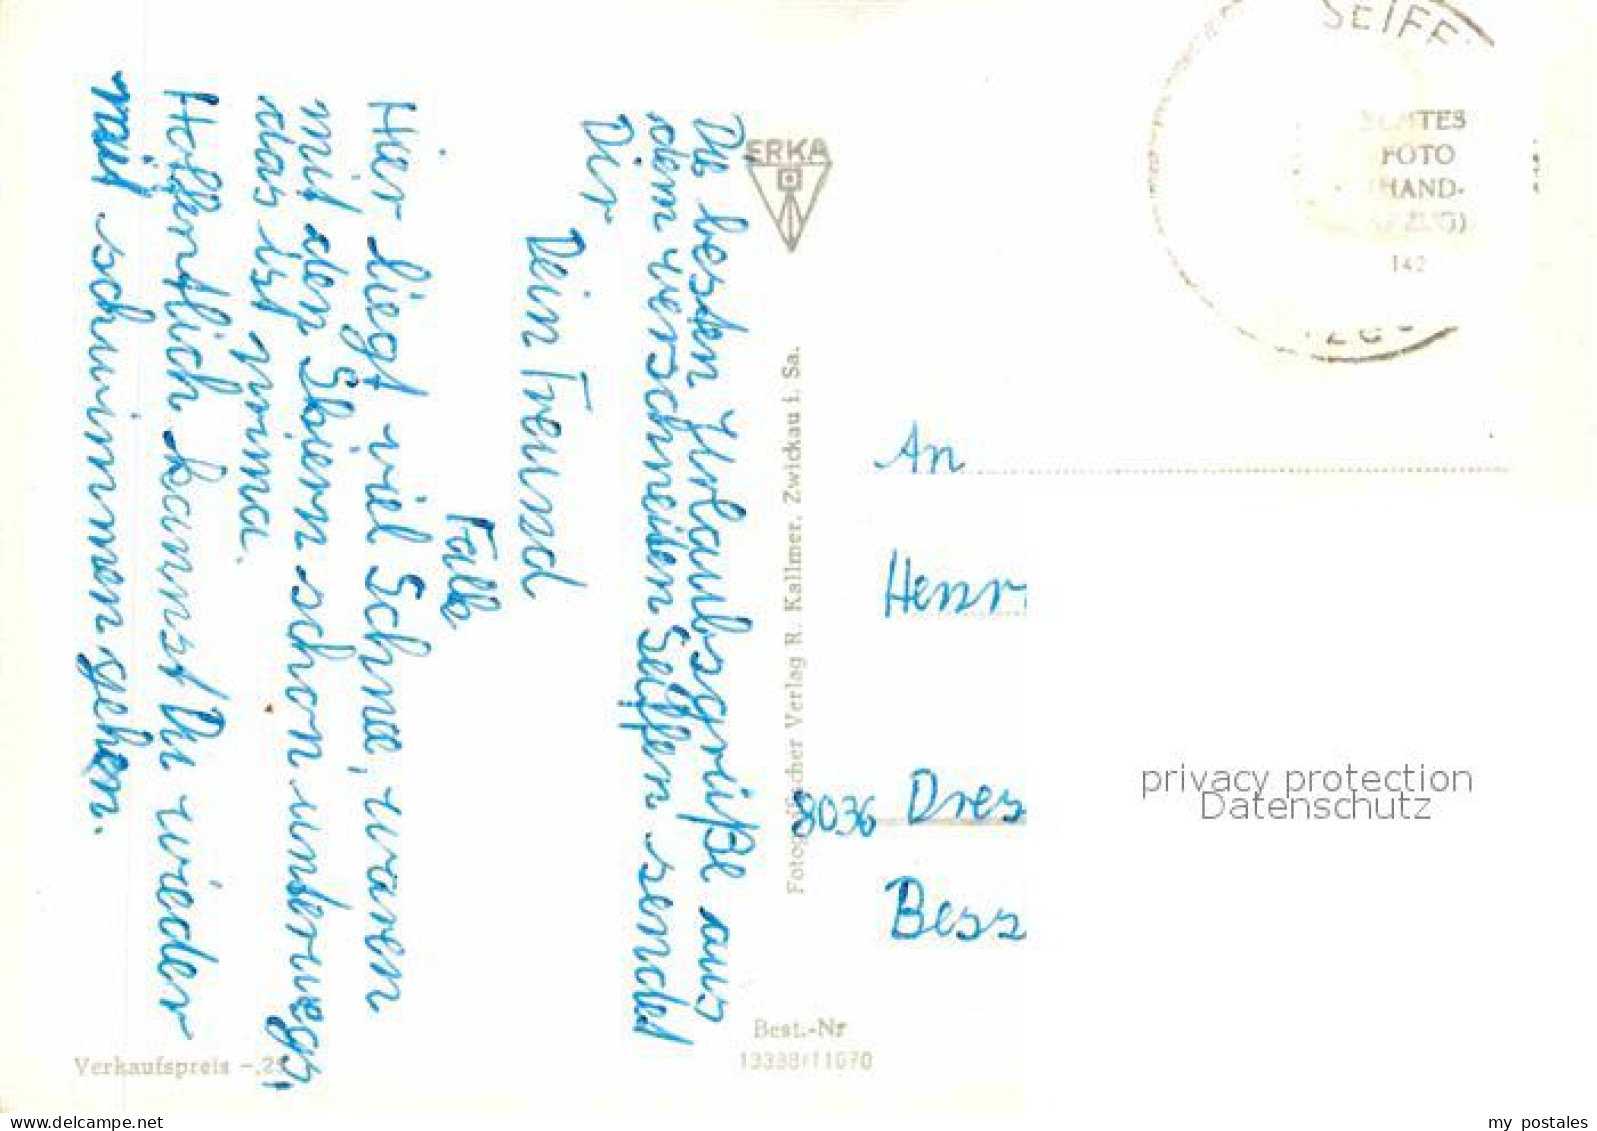 Die besten Urlaubsgrüße aus
dem verschneiten Seiffen sendet
Dir
Dein Freund
Falk
Hier liegt viel Schnee, waren
mit den Skiern schon unterwegs,
das ist prima.
Hoffentlich kannst Du wieder
mit schwimmen gehen.
Verkaufspreis -,25
ERKA
Fotografischer Verlag R. Kallmer, Zwickau i. Sa.
Best.-Nr
SEIFF
FOTO
142
An
Henr
8036 Dres
Bess
privacy protection
Datenschutz
my postales